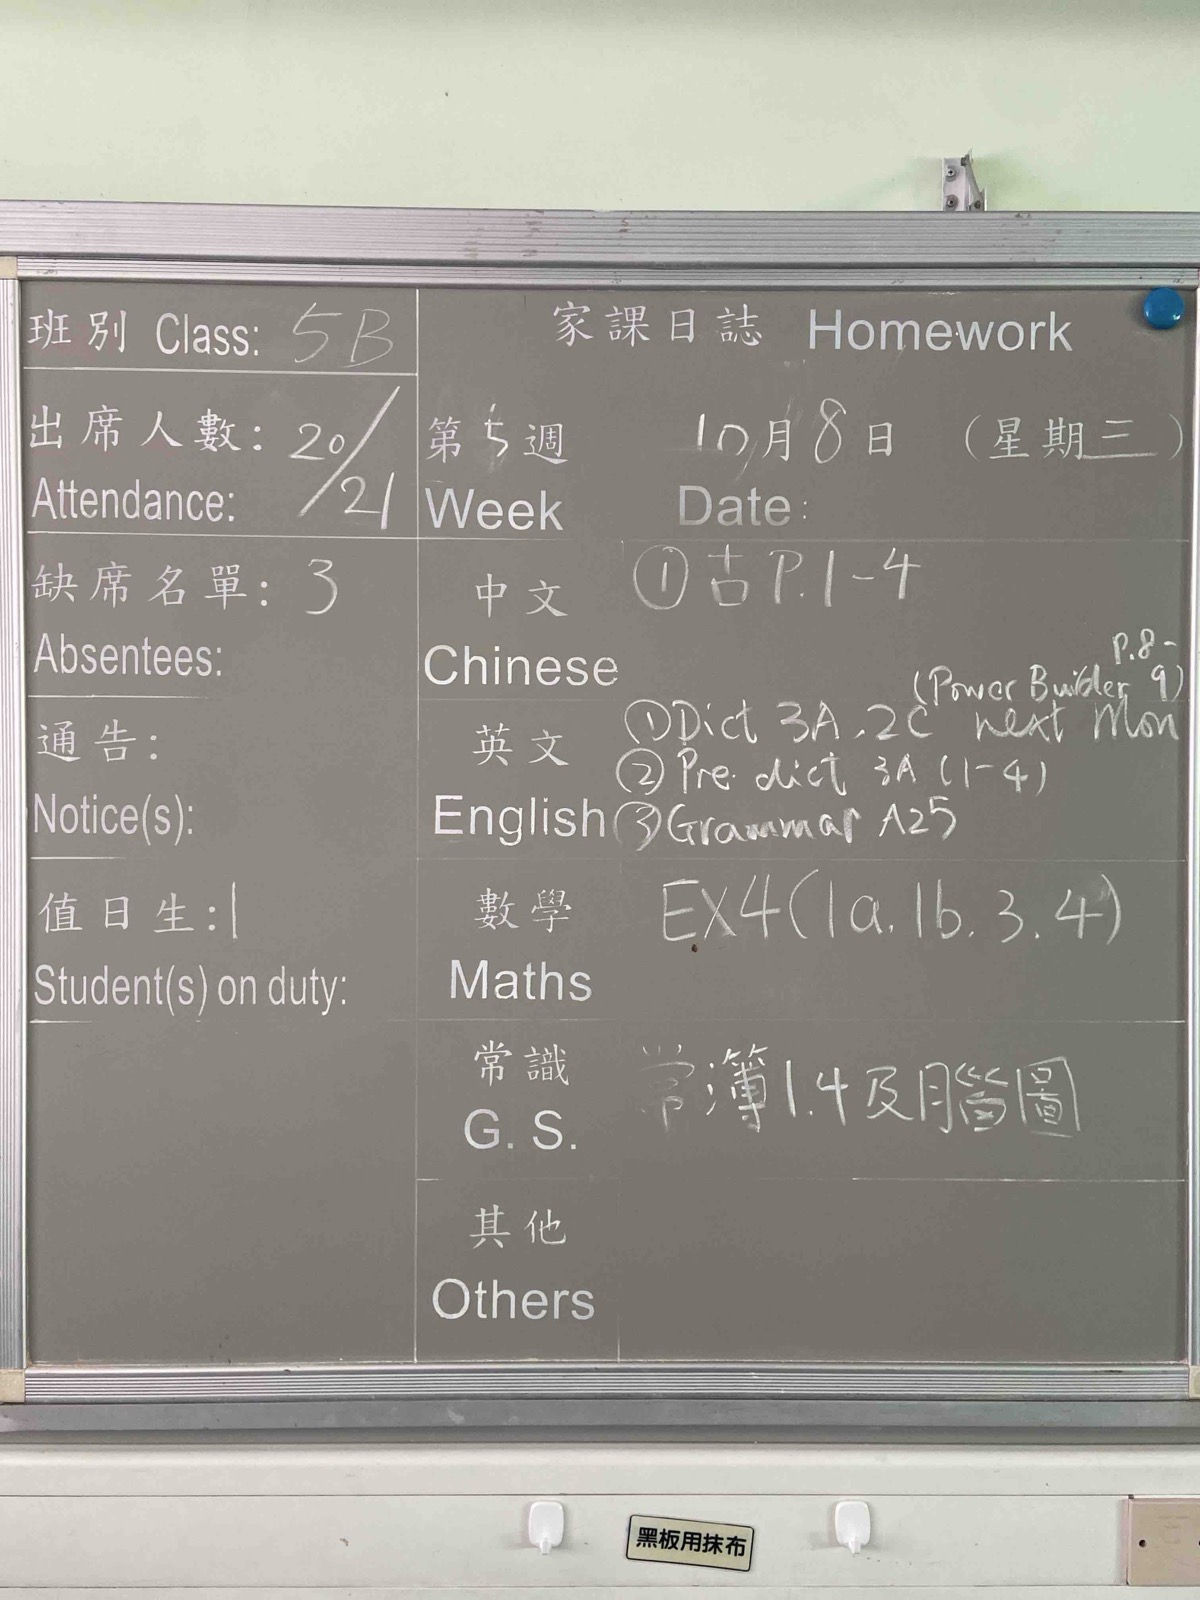 班別 Class: 5B
出席人數: 20/21
Attendance:
缺席名單: 3
Absentees:
通告:
Notice(s):
值日生: 1
Student(s) on duty:
家課日誌 Homework
第5週 10月8日 (星期三)
Week Date:
中文 ①古P.1-4
Chinese
(Power Builder P.8-9)
英文 ①Dict 3A.2C next Mon
②Pre. dict 3A (1-4)
English ③Grammar A25
數學 EX4(1a.1b.3.4)
Maths
常識 常簿1.4及腦圖
G. S.
其他
Others
黑板用抹布